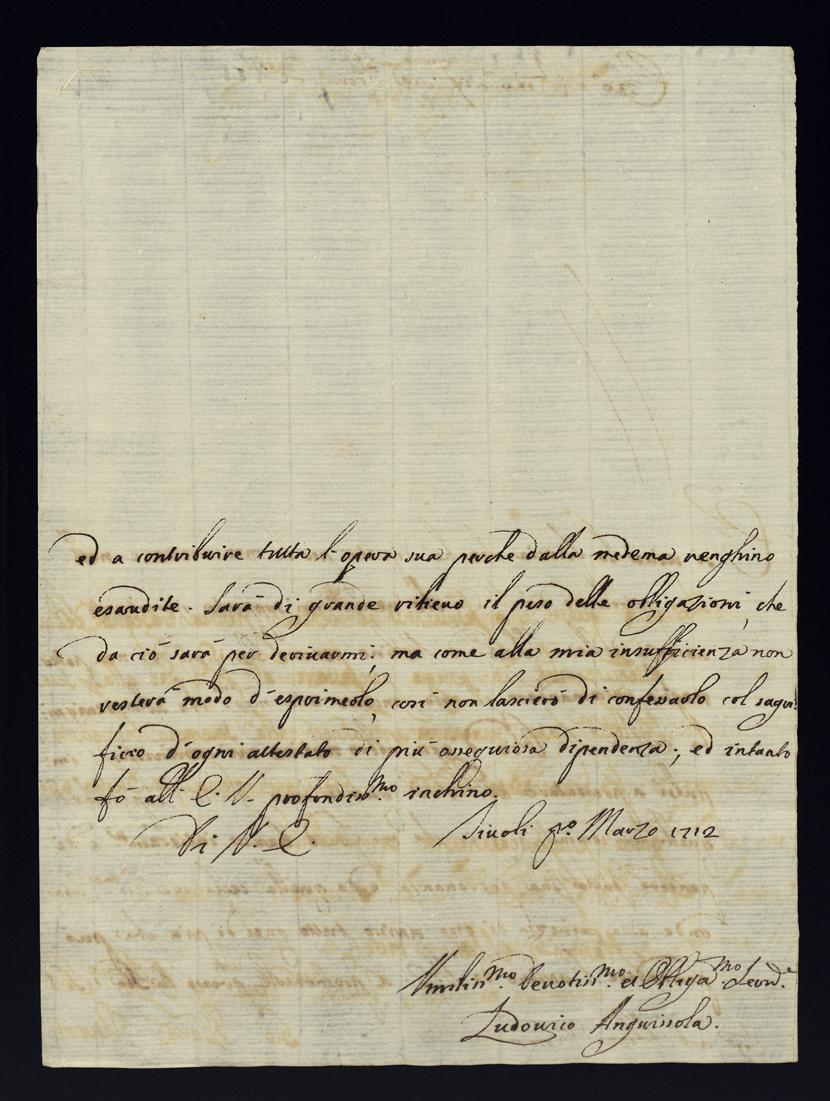 ed a contribuire tutta l'opera sua perche dalla medema venghino
esaudite. Sarà di grande rilievo il peso delle obligazioni, che
da ciò sarà per derivarmi; ma come alla mia insufficienza non
resterà modo d'esprimerlo, così non lascierò di confessarlo col sagri:
ficio d'ogni attestato di più ossequiosa dipendenza; ed intanto
fò all' E. V. profondiss.mo inchino.
Di V. E. Tivoli p.o Marzo 1712
Umiliss.mo Devotiss.mo et Obliga.mo
Ludovico Anguissola.